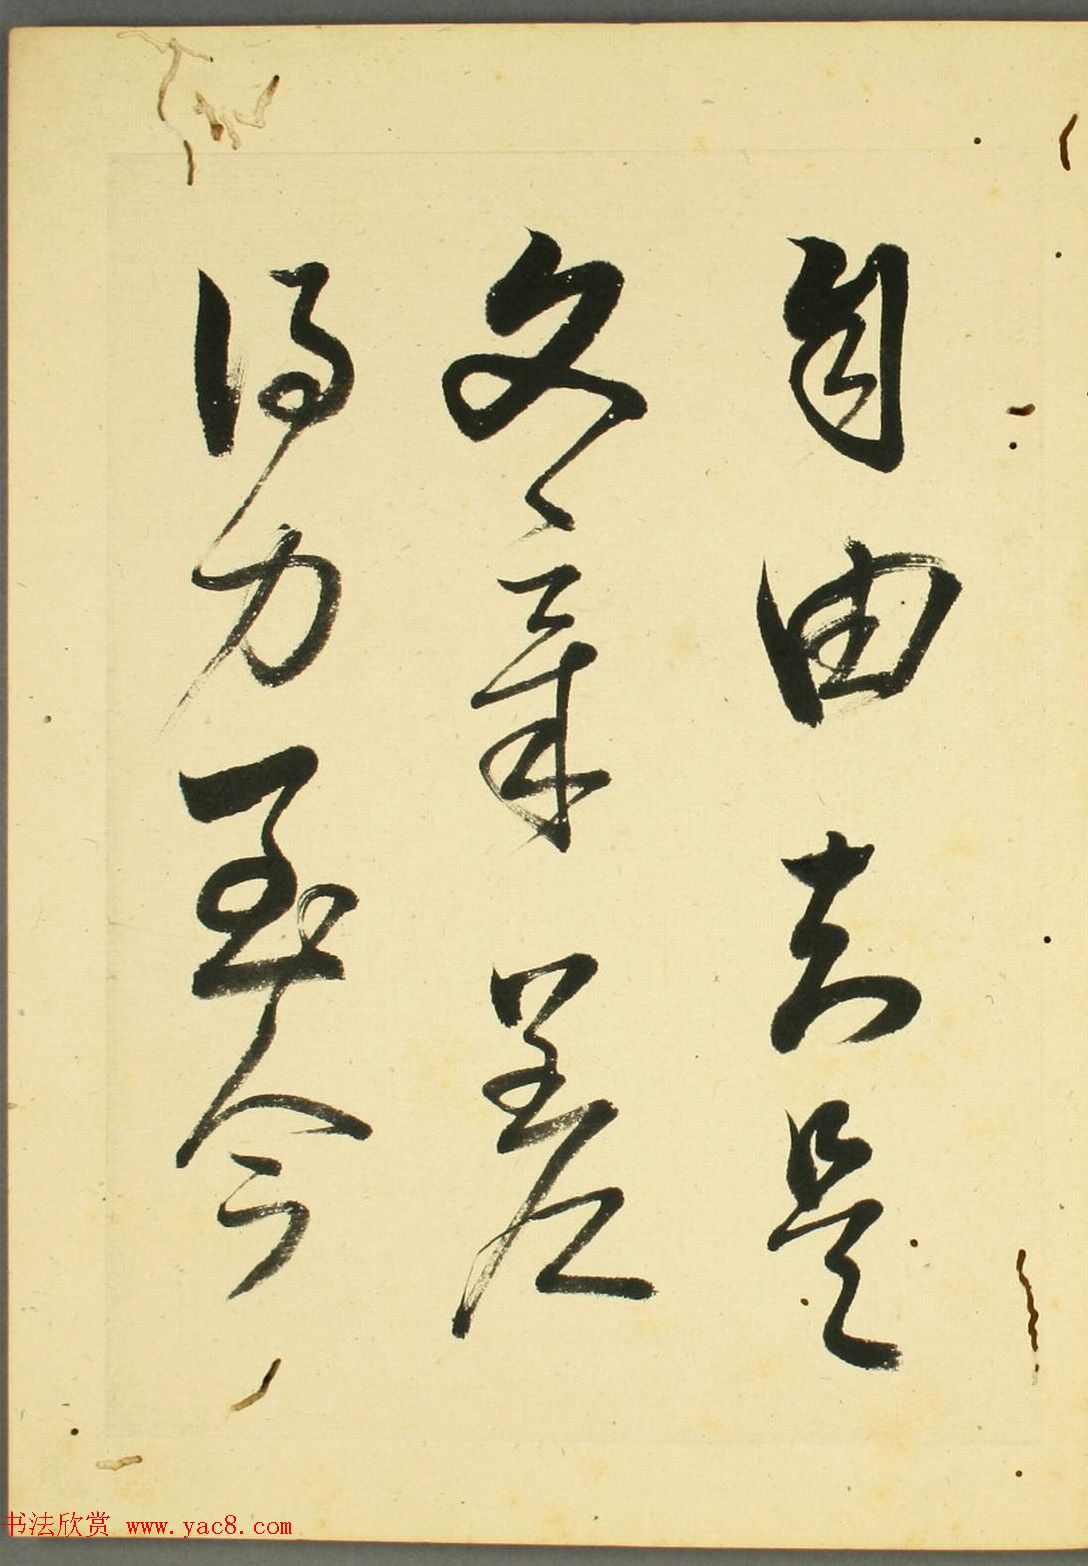 自由去是
文章差
得力至今
书法欣赏 www.yac8.com